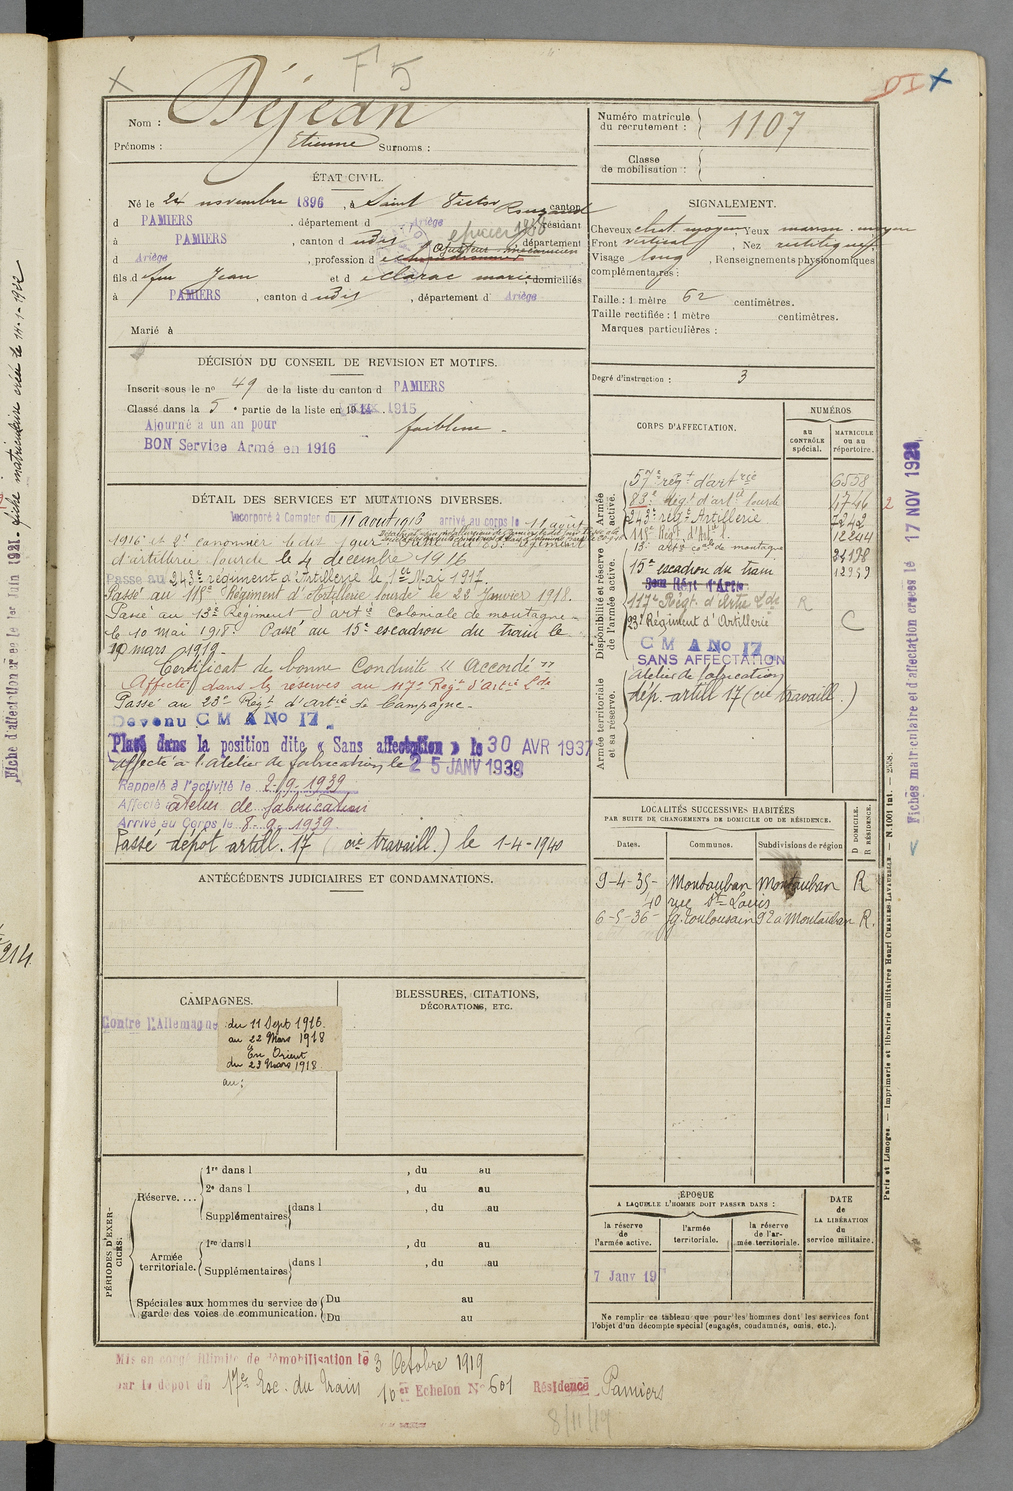 F 5
DI
Nom : Déjean
Prénoms : Etienne Surnoms :
Numéro matricule du recrutement : 1107
Classe de mobilisation :
ÉTAT CIVIL.
Né le 24 novembre 1896, à Saint Victor Rouzaud canton
d PAMIERS, département d Ariège résidant
à PAMIERS, canton d udit département
d Ariège, profession d
fils d feu Jean et d e Clarac marie domiciliés
à PAMIERS, canton d udit, département d' Ariège
Marié à
SIGNALEMENT.
Cheveux chat. moyen Yeux marron moyen
Front vertical, Nez rectiligne
Visage long, Renseignements physionomiques
complémentaires :
Taille : 1 mètre 62 centimètres.
Taille rectifiée : 1 mètre centimètres.
Marques particulières :
Degré d'instruction : 3
DÉCISION DU CONSEIL DE REVISION ET MOTIFS.
Inscrit sous le n° 49 de la liste du canton d PAMIERS
Classé dans la 5e partie de la liste en 1915
Ajourné a un an pour faiblesse
BON Service Armé en 1916
DÉTAIL DES SERVICES ET MUTATIONS DIVERSES.
Incorporé à Compter du 11 août 1916 arrivé au corps le 11 août
1916 et 2e canonnier le dit jour Passé au 83e régiment
d'artillerie lourde le 4 décembre 1916
Passé au 243e régiment d'Artillerie le 1er Mai 1917.
Passé au 118e Régiment d'Artillerie lourde le 22 Janvier 1918.
Passé au 13e Régiment d'artie Coloniale de montagne
le 10 mai 1918. Passé au 15e escadron du train le
10 mars 1919.
Certificat de bonne Conduite "Accordé"
Affecté dans les réserves au 117e Regt d'Artie Lde
Passé au 23e Régt d'Artie de Campagne.
Devenu C M A No 17.
Placé dans la position dite « Sans affectation » le 30 AVR 1937
Affecté à l'atelier de fabrication le 25 JANV 1939
Rappelé à l'activité le 2-9-1939
Affecté atelier de fabrication
Arrivé au Corps le 8-9-1939.
Passé dépôt artill. 17 (cie travaill.) le 1-4-1940
CORPS D'AFFECTATION.
NUMÉROS
au CONTRÔLE spécial.
MATRICULE ou au répertoire.
Armée active.
Disponibilité et réserve de l'armée active.
Armée territoriale et sa réserve.
57e régt d'artrie 6558
83e Régt d'artie lourde 4746
243e régt Artillerie 7242
118e Régt d'Arte l. 12244
13e artie cole de montagne
15e escadron du train 12939
117e Régt d'Artie Lde R
23e Régiment d'Artillerie C
C M A No 17
SANS AFFECTATION
Atelier de fabrication
dép. artill 17 (cie travaill.)
ANTÉCÉDENTS JUDICIAIRES ET CONDAMNATIONS.
LOCALITÉS SUCCESSIVES HABITÉES
PAR SUITE DE CHANGEMENTS DE DOMICILE OU DE RÉSIDENCE.
D DOMICILE. R RÉSIDENCE.
Dates. Communes. Subdivisions de région
9-4-35- Montauban Montauban R
40 rue St Louis
6-5-36- fg. Toulousain 92 à Montauban R.
CAMPAGNES.
Contre l'Allemagne du 11 Sept 1916
au 22 Mars 1918
En Orient
du 23 Mars 1918
au :
BLESSURES, CITATIONS,
DÉCORATIONS, ETC.
PÉRIODES D'EXERCICES.
Réserve....
1re dans l , du au
2e dans l , du au
Supplémentaires dans l , du au
Armée territoriale.
1re dans l , du au
Supplémentaires dans l , du au
Spéciales aux hommes du service de garde des voies de communication.
Du au
Du au
ÉPOQUE
A LAQUELLE L'HOMME DOIT PASSER DANS :
la réserve de l'armée active.
l'armée territoriale.
la réserve de l'armée territoriale.
DATE de LA LIBÉRATION du service militaire.
7 Janv 19
Ne remplir ce tableau que pour les hommes dont les services font
l'objet d'un décompte spécial (engagés, condamnés, omis, etc.).
Mis en congé illimité de démobilisation le 3 Octobre 1919
par le dépôt du 17e Esc. du Train 10er Echelon No 601 Résidence Pamiers
8/11/19
Fiches matriculaire et d'affectation créées le 17 NOV 1921
Paris et Limoges. — Imprimerie et librairie militaires Henri CHARLES-LAVAUZELLE. — N. 1001 int. — 2558.
Fiche d'affectation créée le 1er Juin 1921. fiche matriculaire créée le 14-1-1922
214